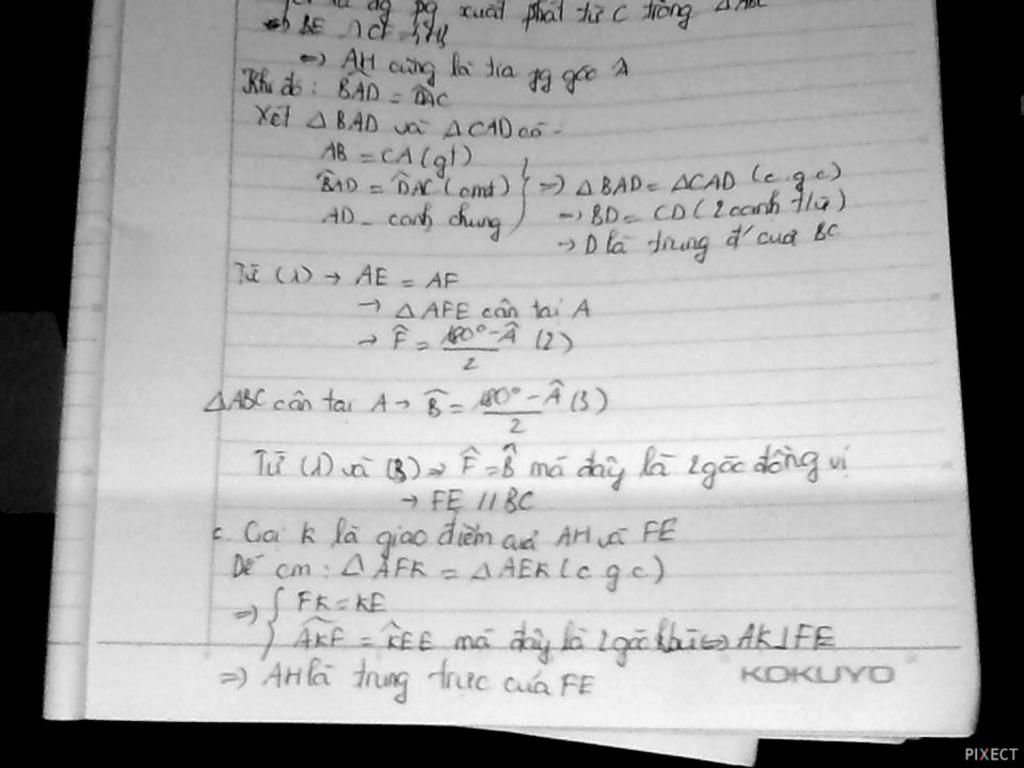 xuất phát từ C trong △ABC
=> BE ∩ CF
=> AH cũng là tia pg góc A
Khi đó: BAD = DAC
Xét △BAD và △CAD có
AB = CA (gt)
BAD = DAC (cmt) } => △BAD = △CAD (c.g.c)
AD - cạnh chung → BD = CD (2 cạnh t/ư)
→ D là trung đ' của BC
Từ (1) → AE = AF
→ △AFE cân tai A
→ F̂ = (180° - Â)/2 (2)
△ABC cân tai A → B̂ = (180° - Â)/2 (3)
Từ (1) và (3) => F̂ = B̂ mà đây là 2 góc đồng vị
→ FE // BC
c. Goi K là giao điểm của AH và FE
Dế cm: △AFK = △AEK (c g c)
=> { FK = KE
AKF = KEE mà đây là 2 góc => AK⊥FE
=> AH là trung trưc của FE
KOKUYO
PIXECT